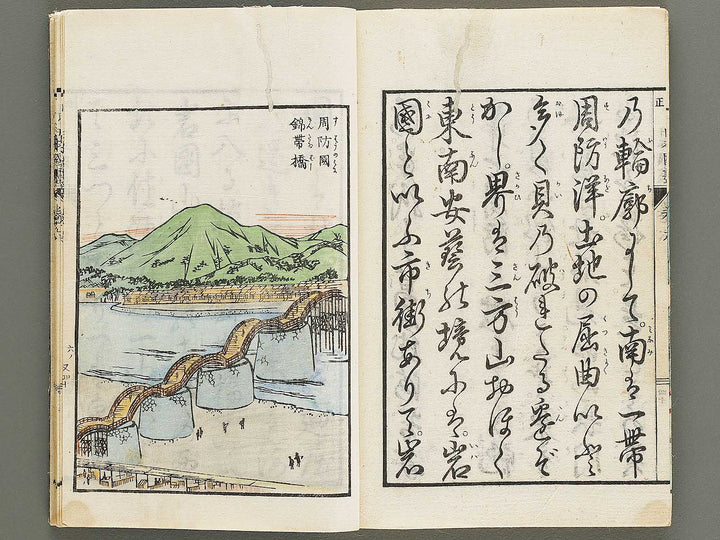 乃輪廓にして。南は一帯
周防洋。土地の屈曲いと
多く貝乃破れたる遺ぞ
かし。界は三方山おほく
東南安藝の境には。岩
國といふ市街ありて。岩
周防國
錦帯橋